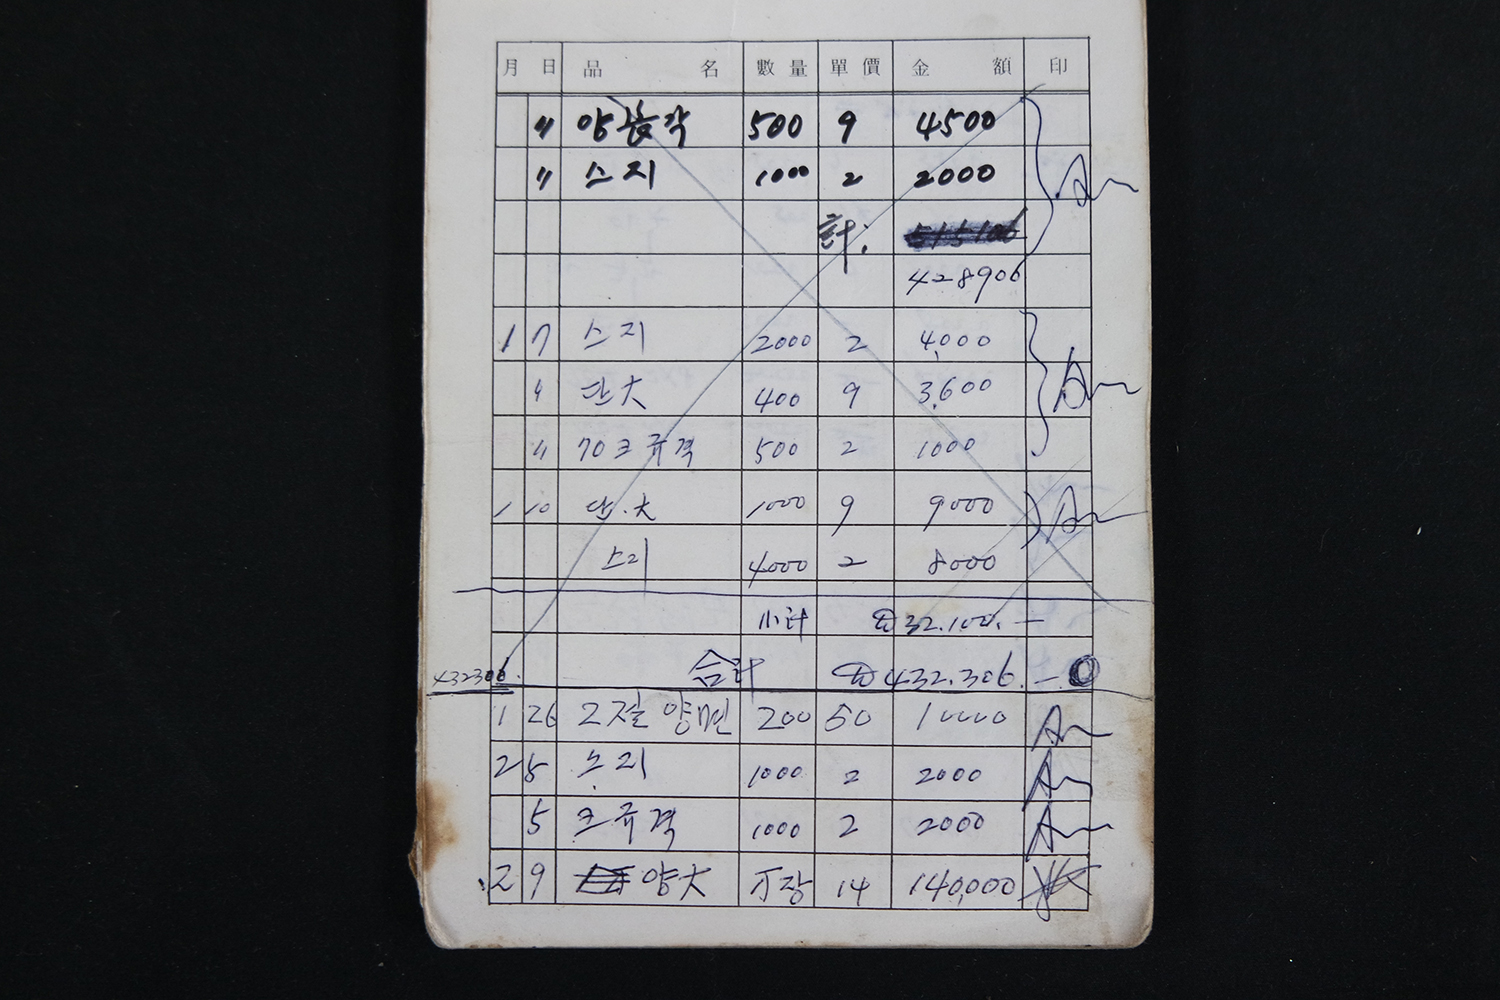 月 日 品 名 數量 單價 金 額 印
〃 양長각 500 9 4500
〃 스지 1000 2 2000
計:
428906
1 7 스지 2000 2 4,000
〃 단大 400 9 3,600
〃 70크규격 500 2 1000
1 10 단.大 1000 9 9000
스리 4000 2 8000
小計 ₩32.100.—
432306. 合計 ₩432.306.—
1 26 2절양면 200 50 10000
2 5 스리 1000 2 2000
5 크규격 1000 2 2000
2 9 양大 万장 14 140,000